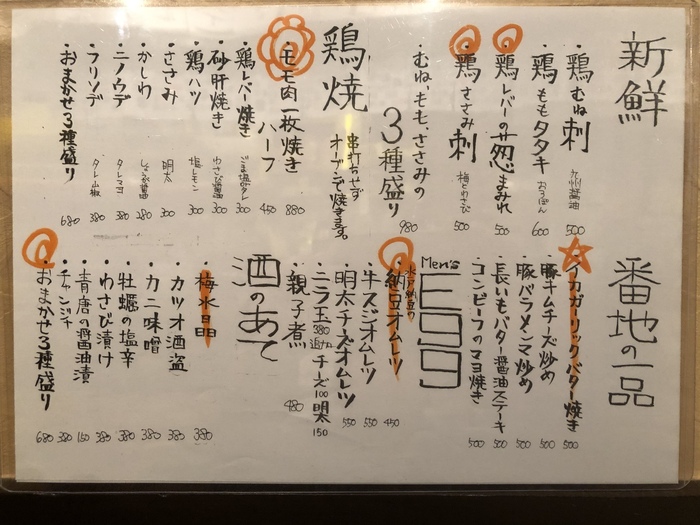 新鮮
・鶏むね刺 九州醤油 500
・鶏ももタタキ おろぽん 600
・鶏レバーの葱まみれ 500
・鶏ささみ刺 梅とわさび 500
・むね、もも、ささみの
3種盛り 980
鶏焼
串打ちせず
オーブンで焼きます。
・モモ肉一枚焼き 880
ハーフ 450
・鶏レバー焼き ごま塩タレ 300
・砂肝焼き わさび醤油 300
・鶏ハツ 塩レモン 300
・ささみ 明太 300
・かしわ しょうが醤油 280
・ニノウデ タレマヨ 380
・フリソデ タレ山椒 380
・おまかせ3種盛り 680
番地の一品
イカガーリックバター焼き 500
・豚キムチーズ炒め 500
・豚バラメンマ炒め 500
・長いもバター醤油ステーキ 500
・コンビーフのマヨ焼き 500
Men's
Egg
水戸納豆の
・納豆オムレツ 450
・牛スジオムレツ 550
・明太チーズオムレツ 550
・ニラ玉 380 追加チーズ100 明太150
・親子煮 480
酒のあて
・梅水晶 380
・カツオ酒盗 380
・カニ味噌 380
・牡蠣の塩辛 380
・わさび漬け 380
・青唐の醤油漬 150
・チャンジャ 380
・おまかせ3種盛り 680